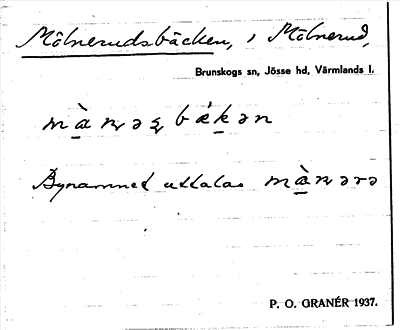 Mölnerudsbäcken, i Mölnerud,
Brunskogs sn, Jösse hd, Värmlands l.
mànəʂ bækən
Bynamnet uttalas mànərə
P. O. GRANÉR 1937.